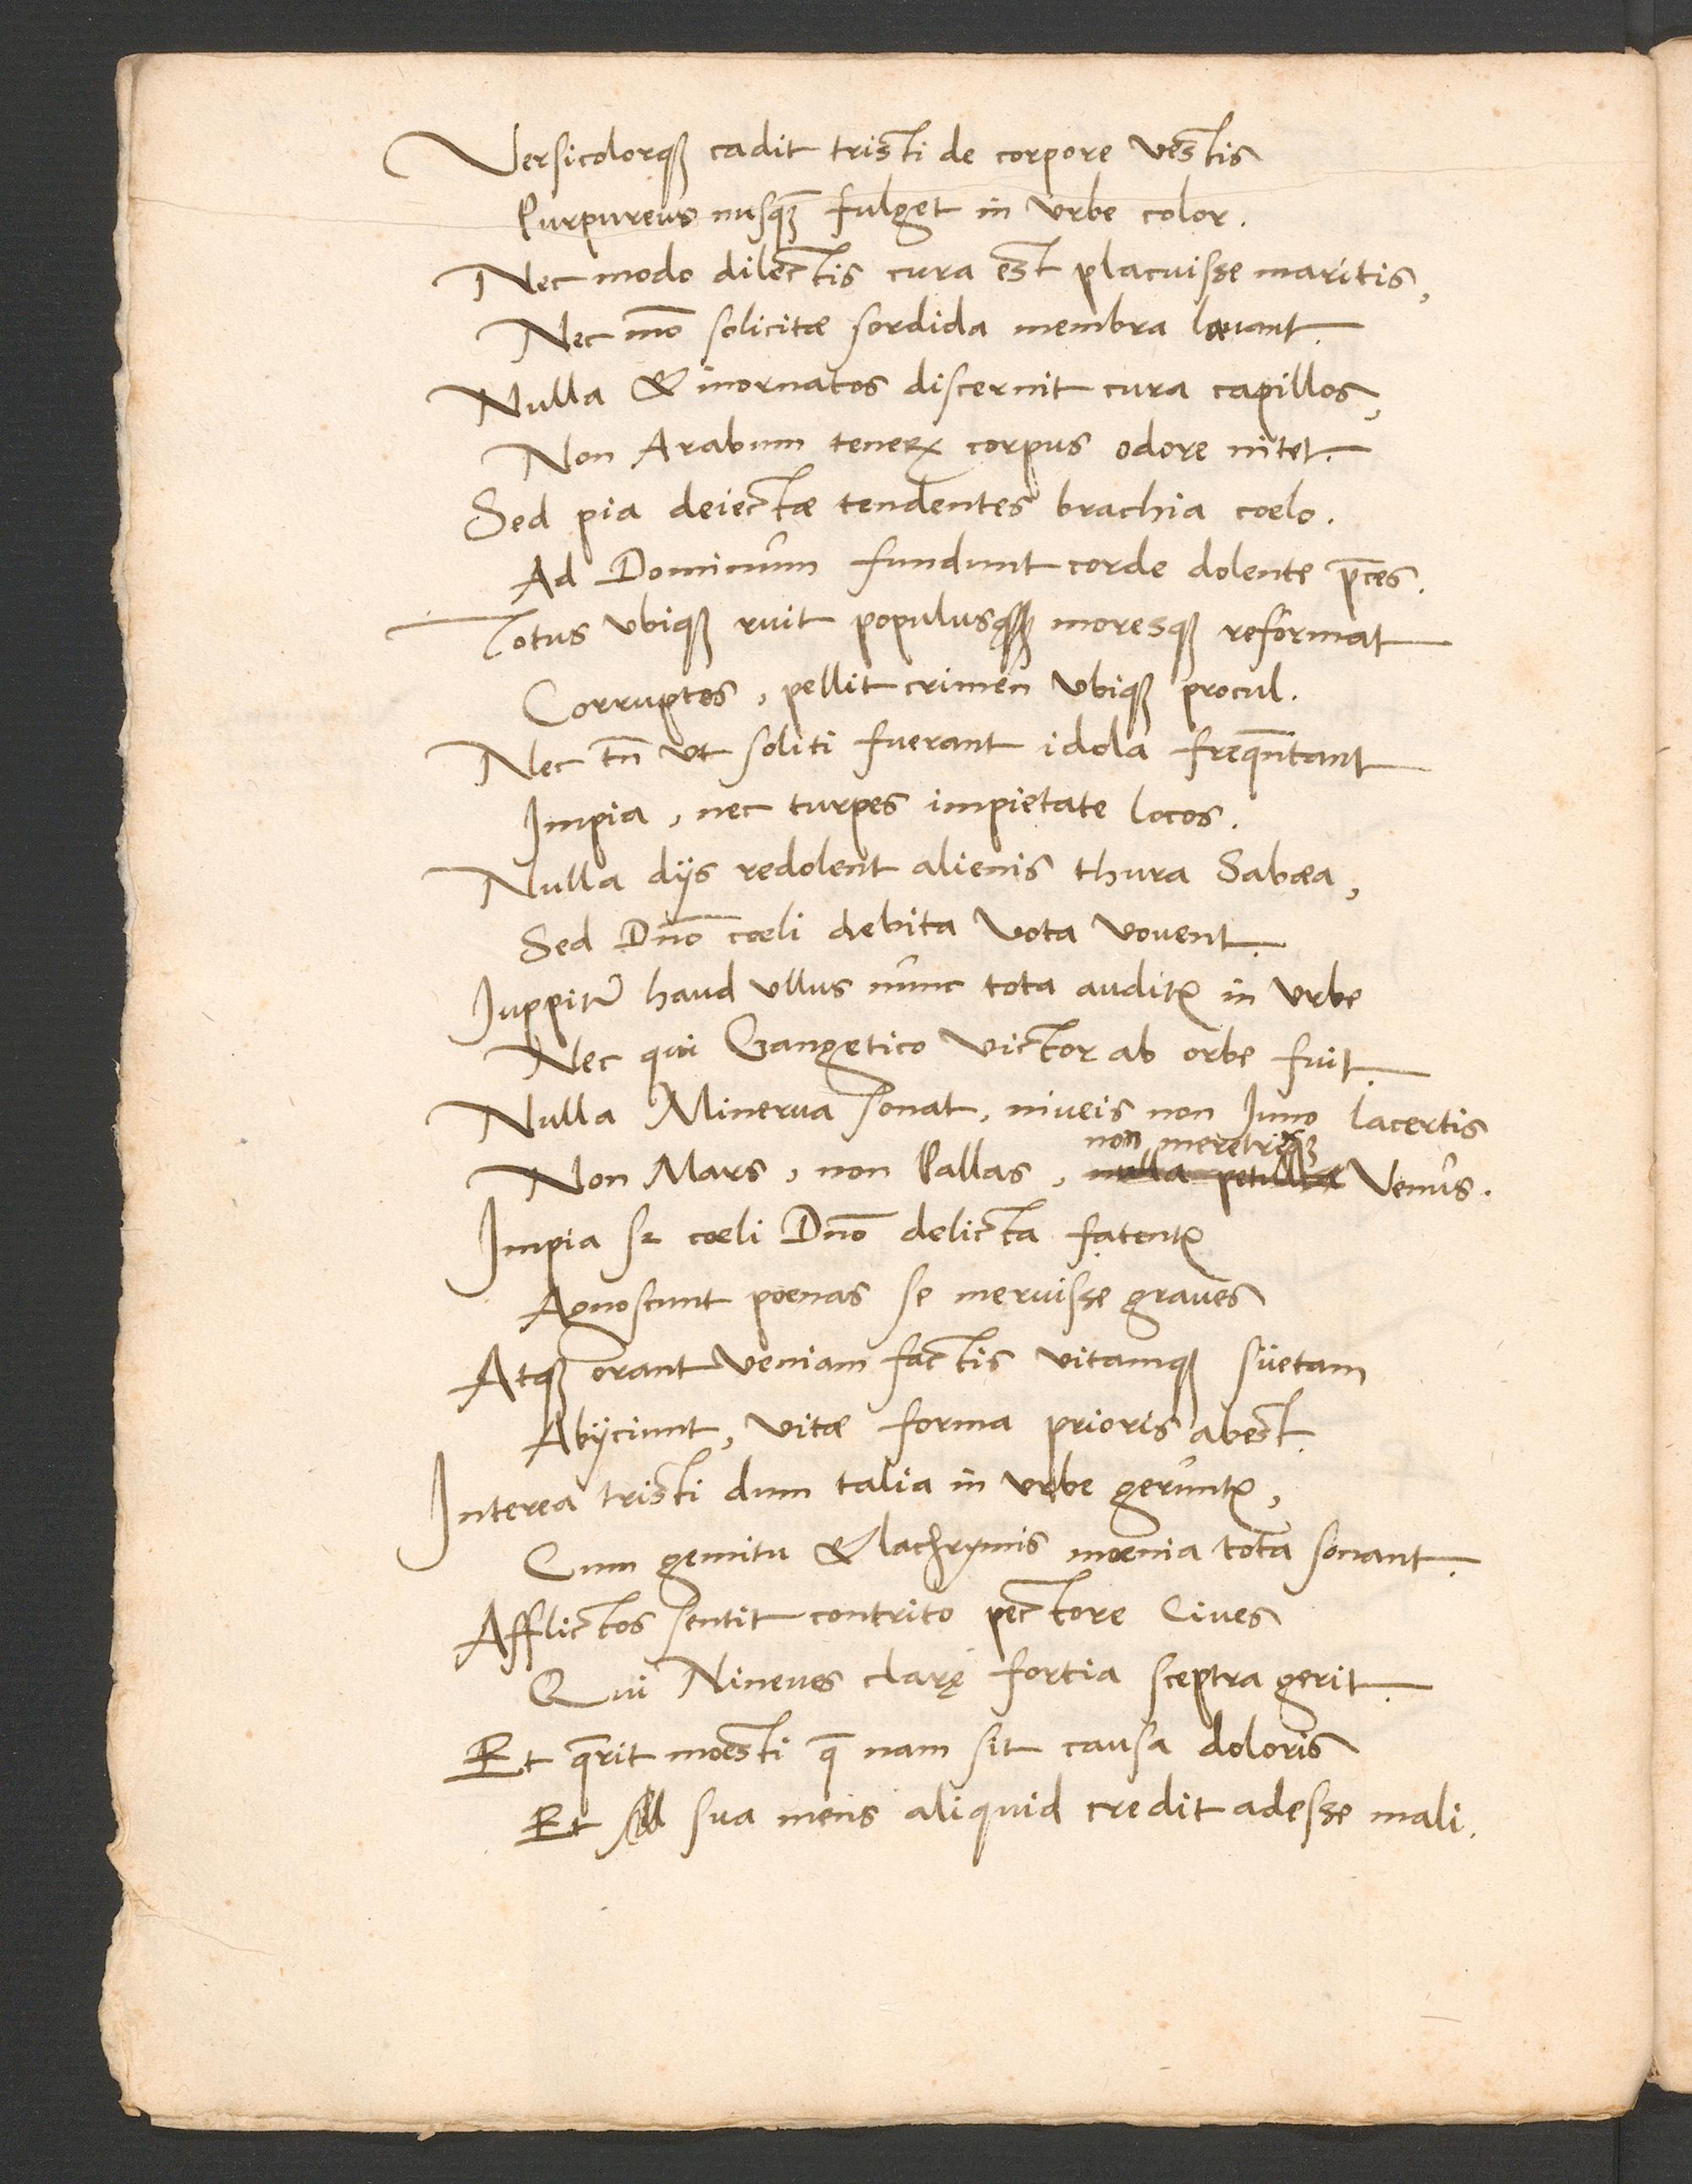 Versicolorqꝫ cadit tristi de corpore vestis
Purpureus nusqꝫ̄ fulget in vrbe color.
Nec modo dilectis cura est placuisse maritis,
Nec mo᷉ solicitæ sordida membra lauant.
Nulla & inornatos discernit cura capillos,
Non Arabum tenerꝝ corpus odore nitet.
Sed pia deiectæ tendentes brachia coelo.
Ad Dominum fundunt corde dolente p̄ces.
Totus vbiqꝫ ruit populus moresqꝫ reformat
Corruptos, pellit crimen vbiqꝫ procul.
Nec tn̄ vt soliti fuerant idola freq̄ntant
Impia, nec turpes impietate locos.
Nulla dijs redolent alienis thura Sabæa,
Sed Dn̄o cœli debita vota vovent.
Juppiter haud vllus nunc tota auditr in vrbe
Nec qui Gangetico victor ab orbe fuit.
Nulla Minerua sonat, niveis non Juno lacertis
non meretrixqꝫ
Non Mars, non Pallas, nulla Venus.
Impia se cœli Dn̄o delicta fatentr
Agnoscunt poenas se meruisse graues
Atqꝫ orant veniam factis vitamqꝫ süetam
Abijciunt, vitæ forma prioris abest.
Interea tristi dum talia in vrbe geruntr,
Cum gemitu & lachrymis mœnia tota sonant.
Afflictos sentit contrito pectore Ciues
Qui Nineues clarę fortia sceptra gerit.
Et q̄rit moesti q̄ nam sit causa doloris
Et sua mens aliquid credit adesse mali.